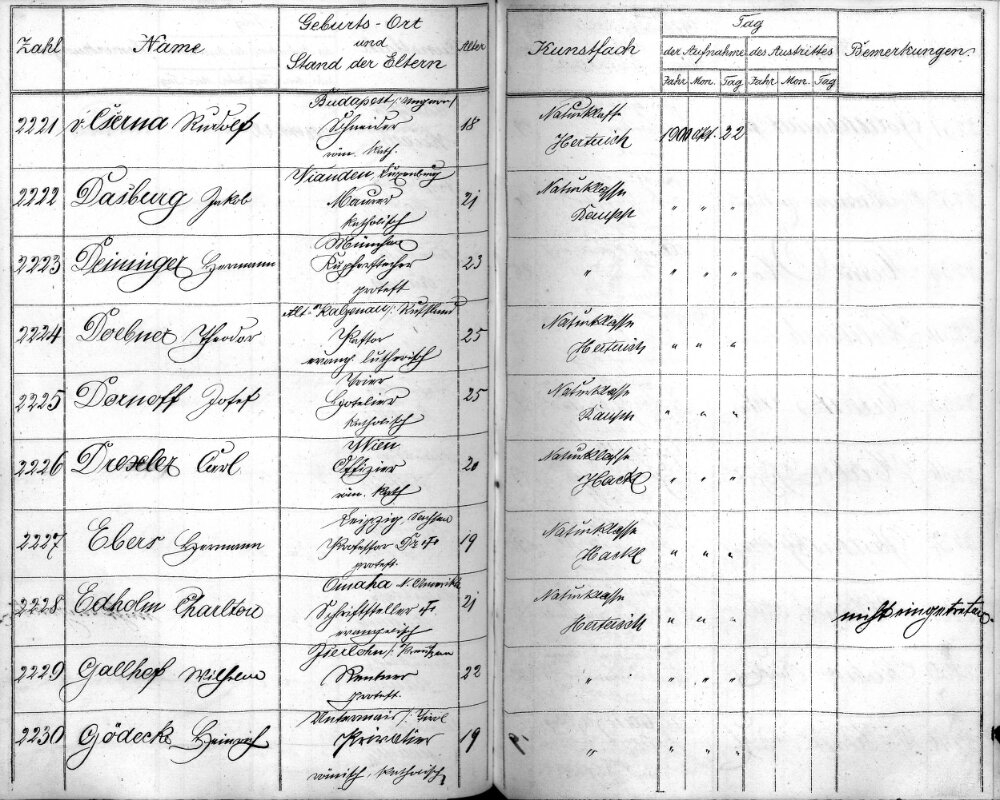 Zahl Name Geburts-Ort und Stand der Eltern Alter Kunstfach Tag der Aufnahme des Austrittes Bemerkungen
Jahr Mon. Tag Jahr Mon. Tag
Budapest / Ungarn / Naturklasse
2221 v. Cserna Rudolf Schneider 18 Herterich 1900 Okt. 22
röm. kath.
Vianden, Luxenburg Naturklasse
2222 Dasburg Jakob Maurer 21 Raupp " " "
katholisch
München
2223 Deininger Hermann Kupferstecher 23 " " " "
protest.
Alt- / Russland Naturklasse
2224 Doebner Theodor Pastor 25 Herterich " " "
evang. lutherisch
Trier Naturklasse
2225 Dornoff Josef Hotelier 25 Raupp " " "
katholisch
Wien Naturklasse
2226 Drexler Carl Offizier 20 Hackl " " "
röm. kath
Leipzig, Sachsen Naturklasse
2227 Ebers Hermann Professor Dr. † 19 Hackl " " "
protest.
Omaha N. Amerika Naturklasse
2228 Edholm Charlton Schriftsteller † 21 Herterich " " " nicht eingetreten.
evangelisch
Iserlohn / Preußen
2229 Gallhof Wilhelm Rentner 22 " " " "
protest.
Untermais / Tirol
2230 Gödecke Heinrich Privatier 19 " " " "
römisch. katholisch